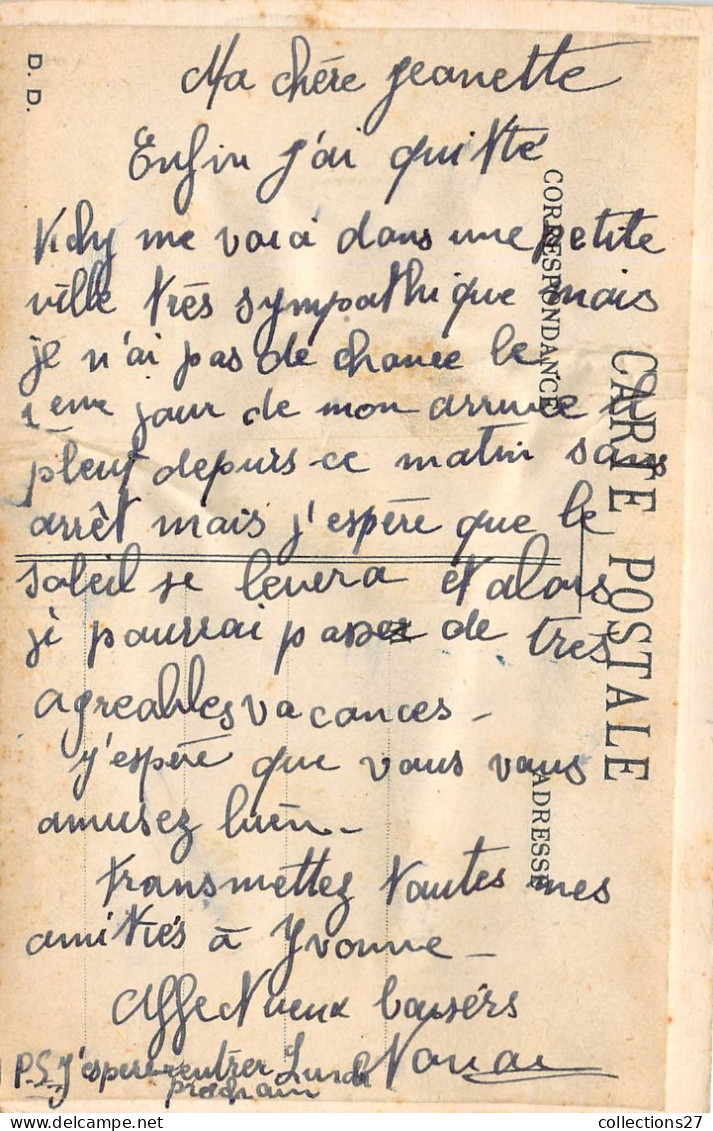 D. D.
Ma chère Jeanette
Enfin j'ai quitté
me voici dans une petite
ville très sympathique mais
je n'ai pas de chance le
1eme jour de mon arrivée il
pleut depuis ce matin sans
arrêt mais j'espère que le
soleil se levera et alors
je pourrai passer de très
agreables vacances -
j'espère que vous vous
amusez bien -
transmettez toutes mes
amitiés à Yvonne -
Affectueux baisers
P.S. J'espere rentrer Lundi
prochain
CORRESPONDANCE
CARTE POSTALE
ADRESSE
collections27